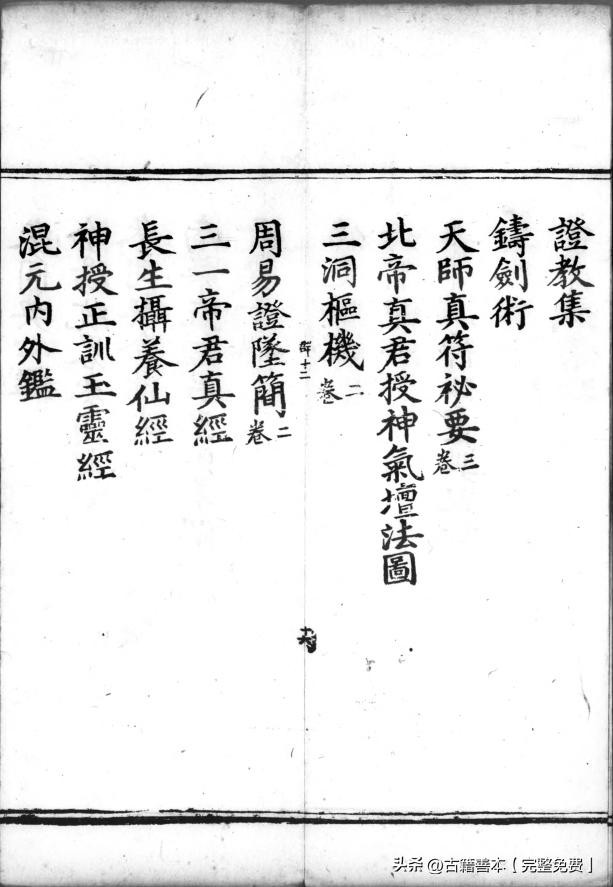 證教集
鑄劍術
天師真符祕要三卷
北帝真君授神氣壇法圖
三洞樞機二卷
十二
周易證墜簡二卷
三一帝君真經
長生攝養仙經
神授正訓玉靈經
混元内外鑑
头条 @古籍善本【完整免费】